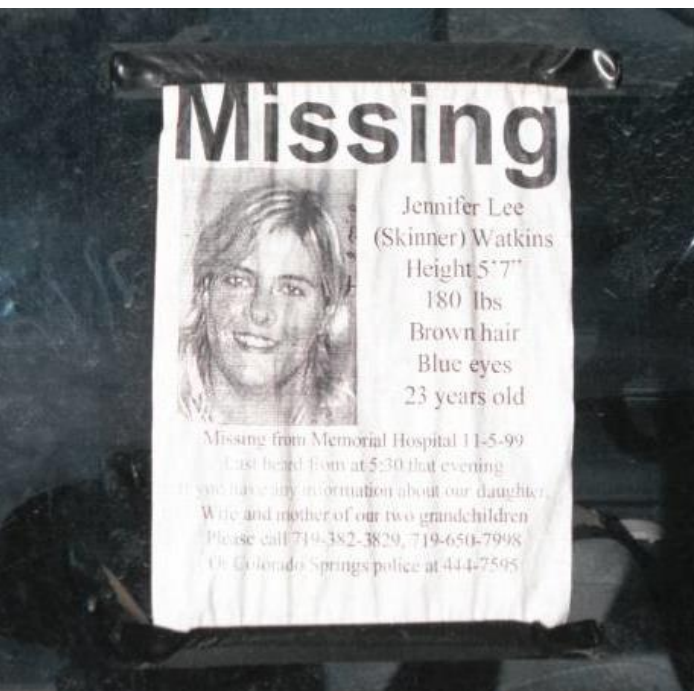 Missing
Jennifer Lee
(Skinner) Watkins
Height 5'7"
180 lbs
Brown hair
Blue eyes
23 years old
Missing from Memorial Hospital 11-5-99
Last heard from at 5:30 that evening
If you have any information about our daughter,
Wife and mother of our two grandchildren
Please call 719-382-3829, 719-650-7998
Or Colorado Springs police at 444-7595